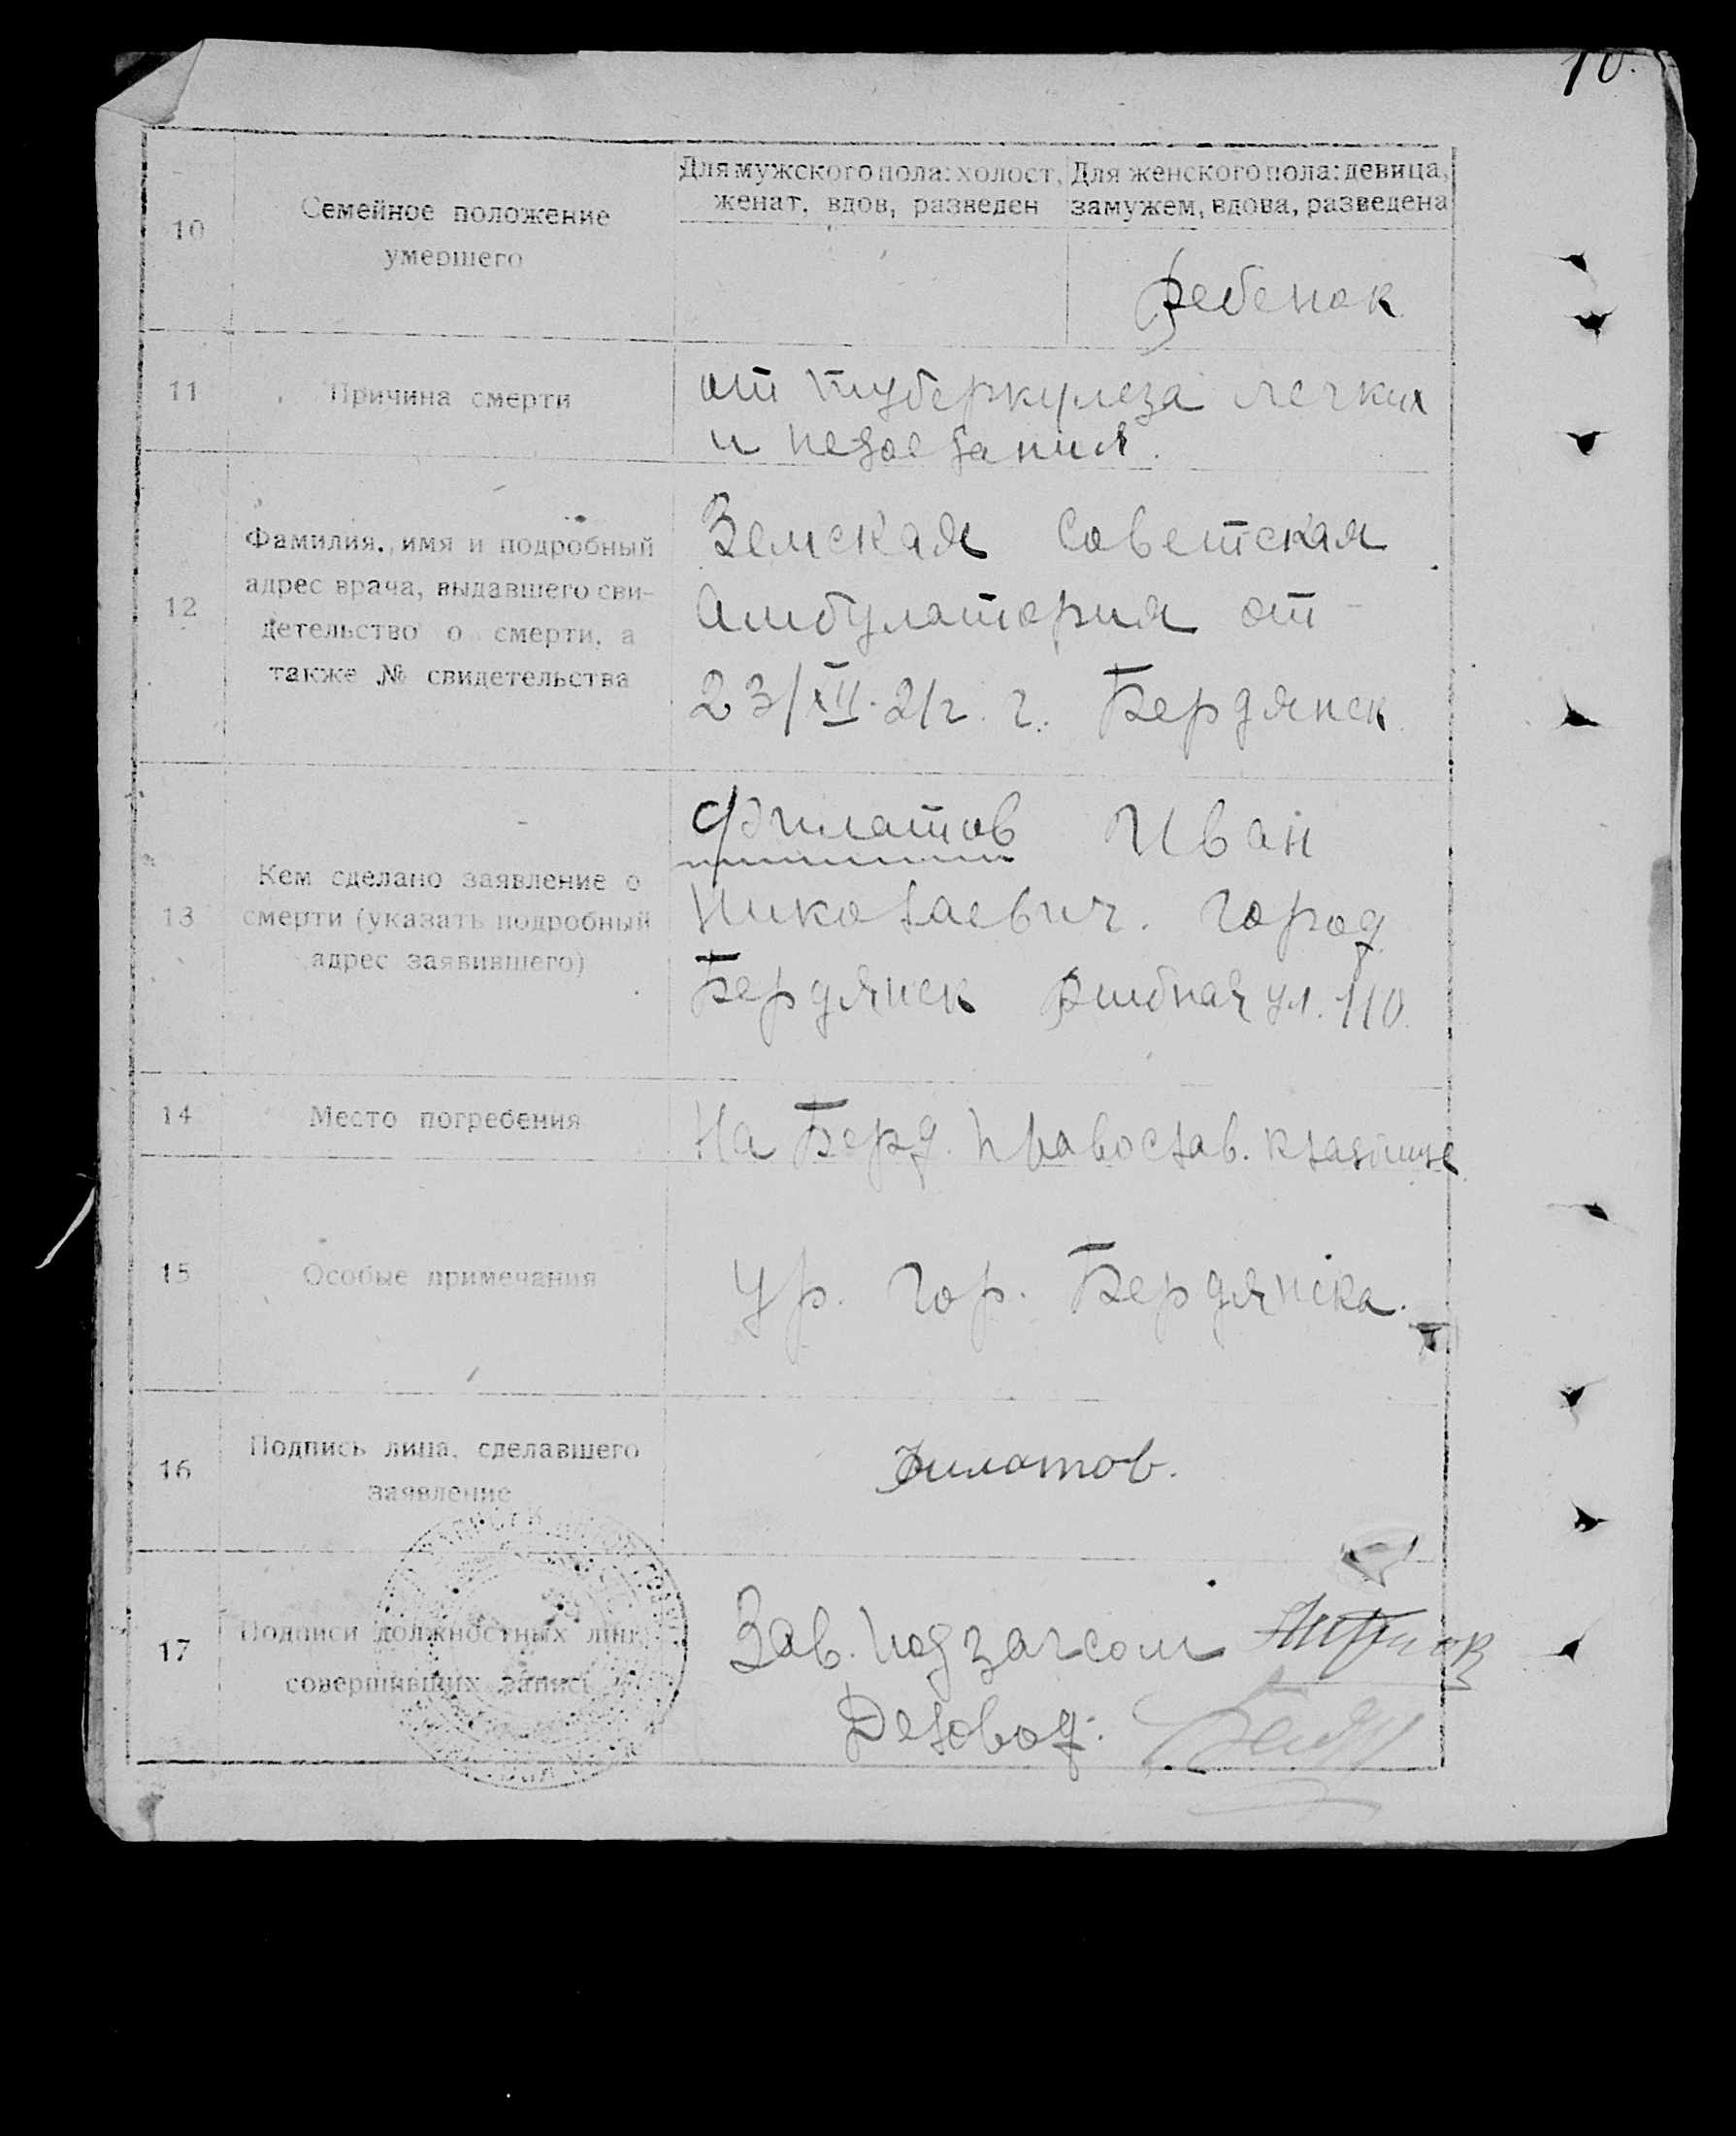 10.
Для мужского пола: холост, женат, вдов, разведен
Для женского пола: девица, замужем, вдова, разведена
10
Семейное положение
умершего
Ребенок
11
Причина смерти
от туберкулеза легких
и недоедания.
12
Фамилия, имя и подробный
адрес врача, выдавшего сви-
детельство о смерти, а
также № свидетельства
Земская Советская
Амбулатория от
23/XII.21г. г. Бердянск
13
Кем сделано заявление о
смерти (указать подробный
адрес заявившего)
Филатов Иван
Николаевич. Город
Бердянск ул. 110.
14
Место погребения
На Берд. Православ. кладбище
15
Особые примечания
Ур. гор. Бердянска.
16
Подпись лица, сделавшего
заявление
Филатов.
17
Подписи должностных лиц,
совершивших запись
Зав. Подзагсом
Деловод.